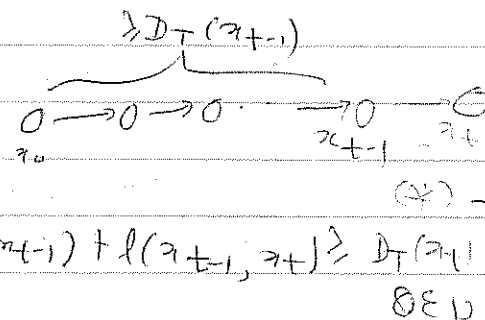 ≥ D_T (x_{t-1})
O → O → O · · · → O → O
x_0 x_{t-1} x_t
(*) -
x_{t-1}) + l(x_{t-1}, x_t) ≥ D_T(x_t